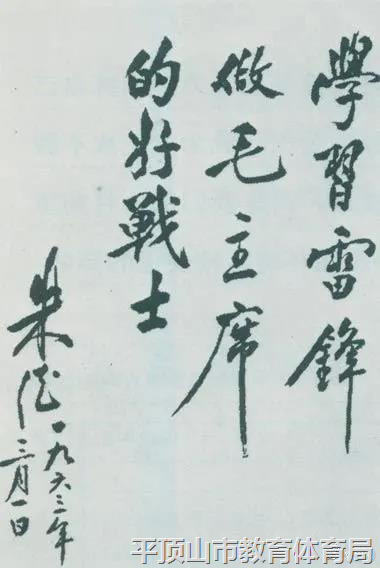 學習雷鋒
做毛主席
的好戰士
朱德
一九六三年
三月一日
平顶山市教育体育局